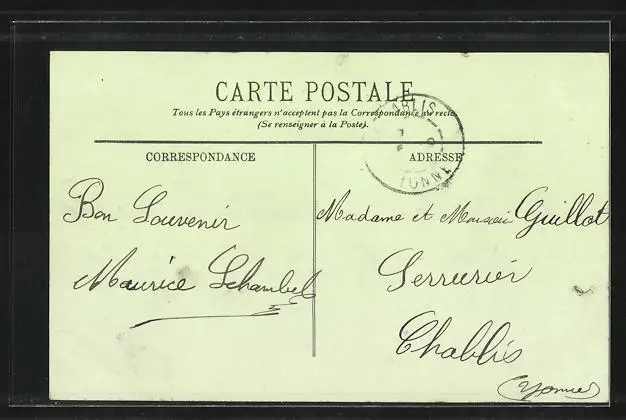 CARTE POSTALE
Tous les Pays étrangers n'acceptent pas la Correspondance au recto
(Se renseigner à la Poste).
CORRESPONDANCE
ADRESSE
CHABLIS
YONNE
Bon Souvenir
Maurice
Madame et Monsieur Guillot
Serrurier
Chablis
(Yonne)